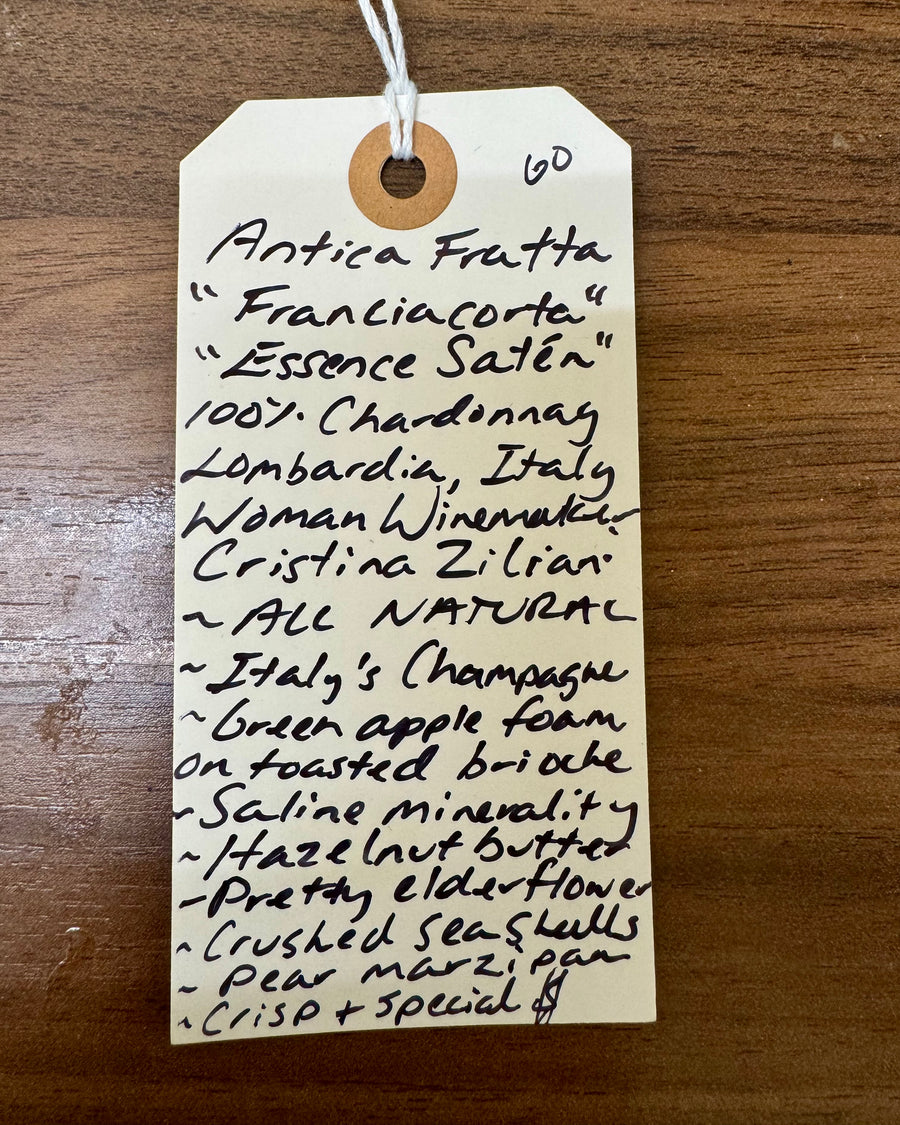 60
Antica Fratta
"Franciacorta"
"Essence Satén"
100% Chardonnay
Lombardia, Italy
Woman Winemaker
Cristina Ziliani
~ ALL NATURAL
~ Italy's Champagne
~ Green apple foam
on toasted brioche
~ Saline minerality
~ Hazelnut butter
~ Pretty elderflower
~ Crushed seashells
~ Pear marzipan
~ Crisp + special